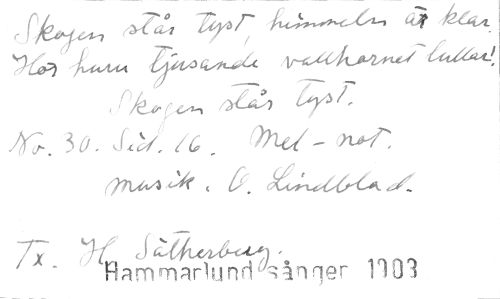 Skogen står tyst, himmeln är klar.
Hör huru tjusande vallhornet lullar!
Skogen står tyst.
No. 30. Sid. 16. Mel-not.
musik. O. Lindblad.
Tx. H. Sätherberg.
Hammarlund sånger 1903